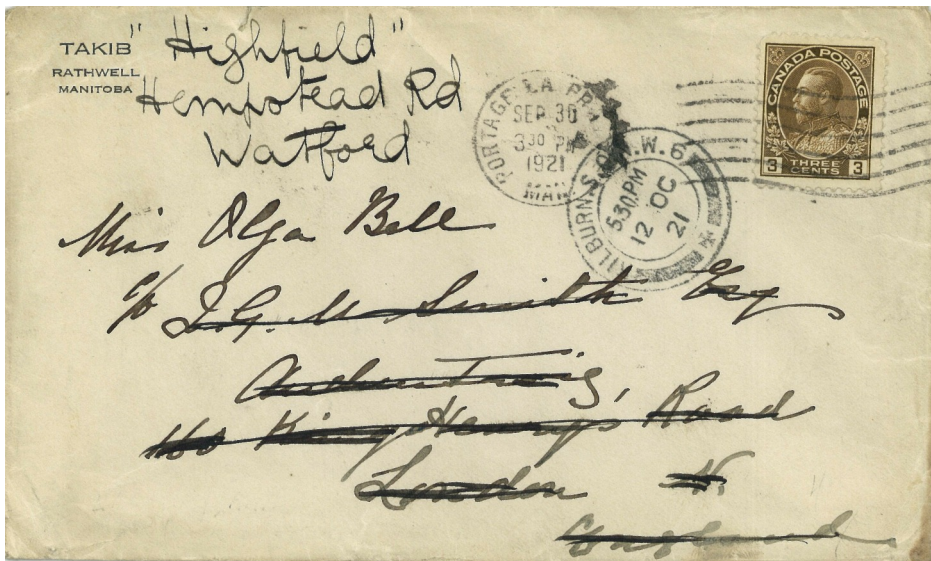 TAKIB
RATHWELL
MANITOBA
"Highfield"
Hempstead Rd
Watford
PORTAGE LA PRAIRIE
SEP 30
3 30 PM
1921
MAN.
KILBURN S.O. N.W.6
5.30 PM
12 OC
21
CANADA POSTAGE
3 THREE CENTS 3
Miss Olga Bell
c/o J.G. M. Smith Esq
160 King Henrys Road
London N.
England